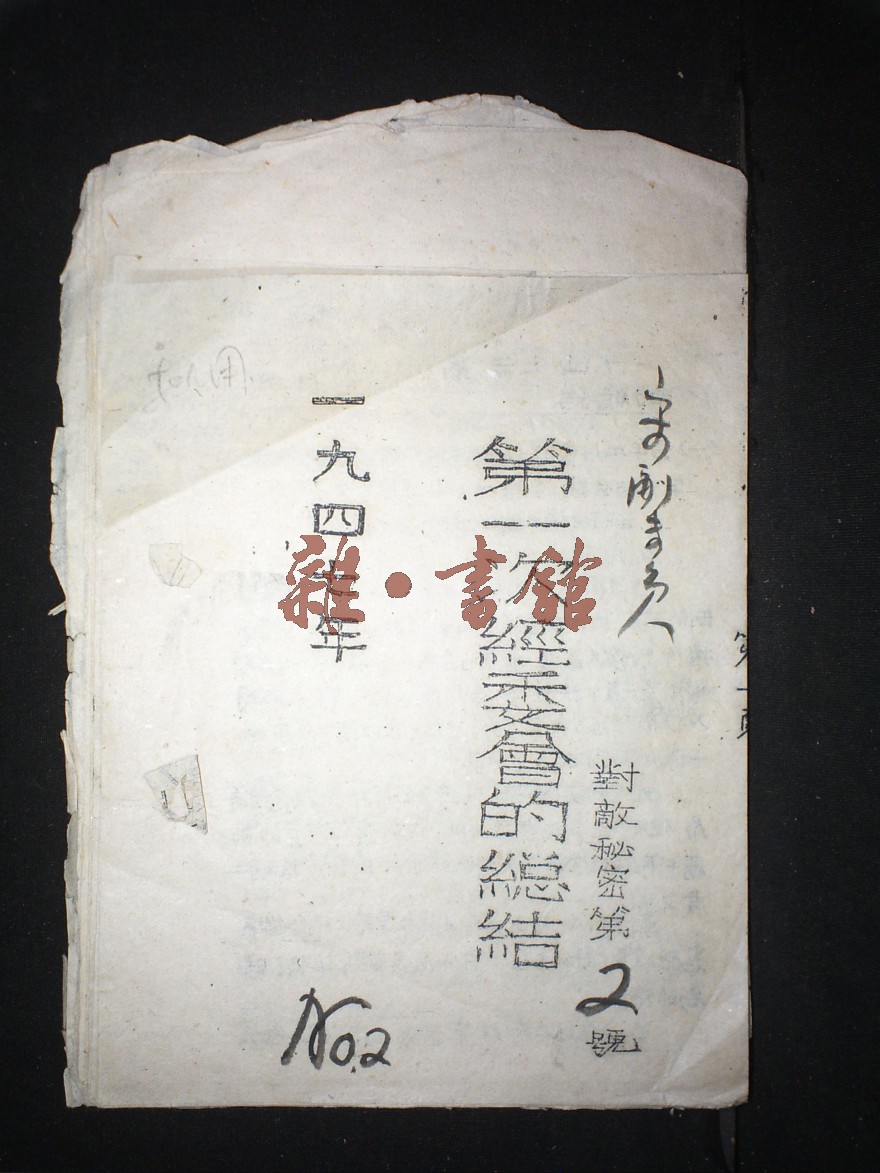 宋副专員
對敵秘密第2號
第一次經委會的總結
一九四七年
No.2
雜·書館